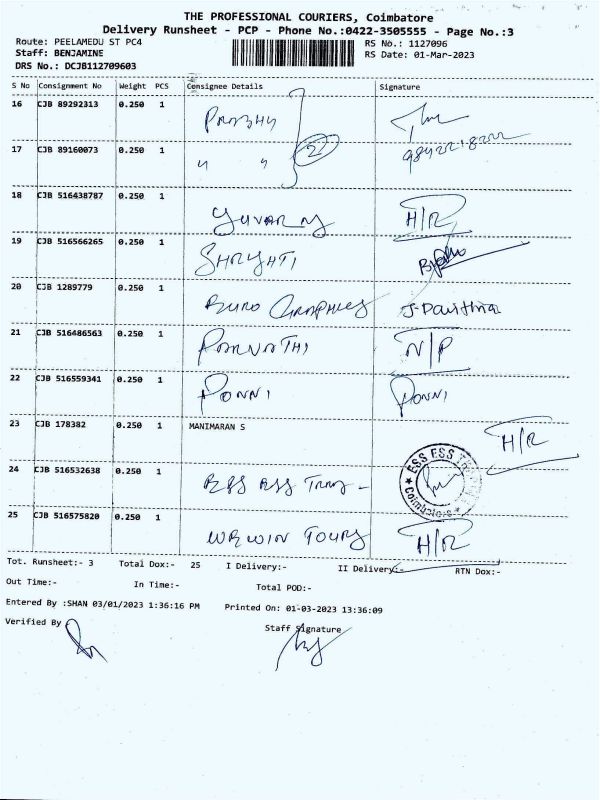 THE PROFESSIONAL COURIERS, Coimbatore
Delivery Runsheet - PCP - Phone No.:0422-3505555 - Page No.:3
Route: PEELAMEDU ST PC4
RS No.: 1127096
Staff: BENJAMINE
RS Date: 01-Mar-2023
DRS No.: DCJB112709603
S No Consignment No Weight PCS Consignee Details Signature
16 CJB 89292313 0.250 1 PRABHU
17 CJB 89160073 0.250 1 〃 〃 2
18 CJB 516438787 0.250 1 YUVARAJ H/R
19 CJB 516566265 0.250 1
20 CJB 1289779 0.250 1 EURO GRAPHICS
21 CJB 516486563 0.250 1 PARVATHI N/P
22 CJB 516559341 0.250 1 PONNI PONNI
23 CJB 178382 0.250 1 MANIMARAN S H/R
24 CJB 516532638 0.250 1 ESS ESS
ESS ESS
Coimbatore
25 CJB 516575820 0.250 1 TOURS H/R
Tot. Runsheet:- 3 Total Dox:- 25 I Delivery:- II Delivery:- RTN Dox:-
Out Time:- In Time:- Total POD:-
Entered By :SHAN 03/01/2023 1:36:16 PM Printed On: 01-03-2023 13:36:09
Verified By Staff Signature